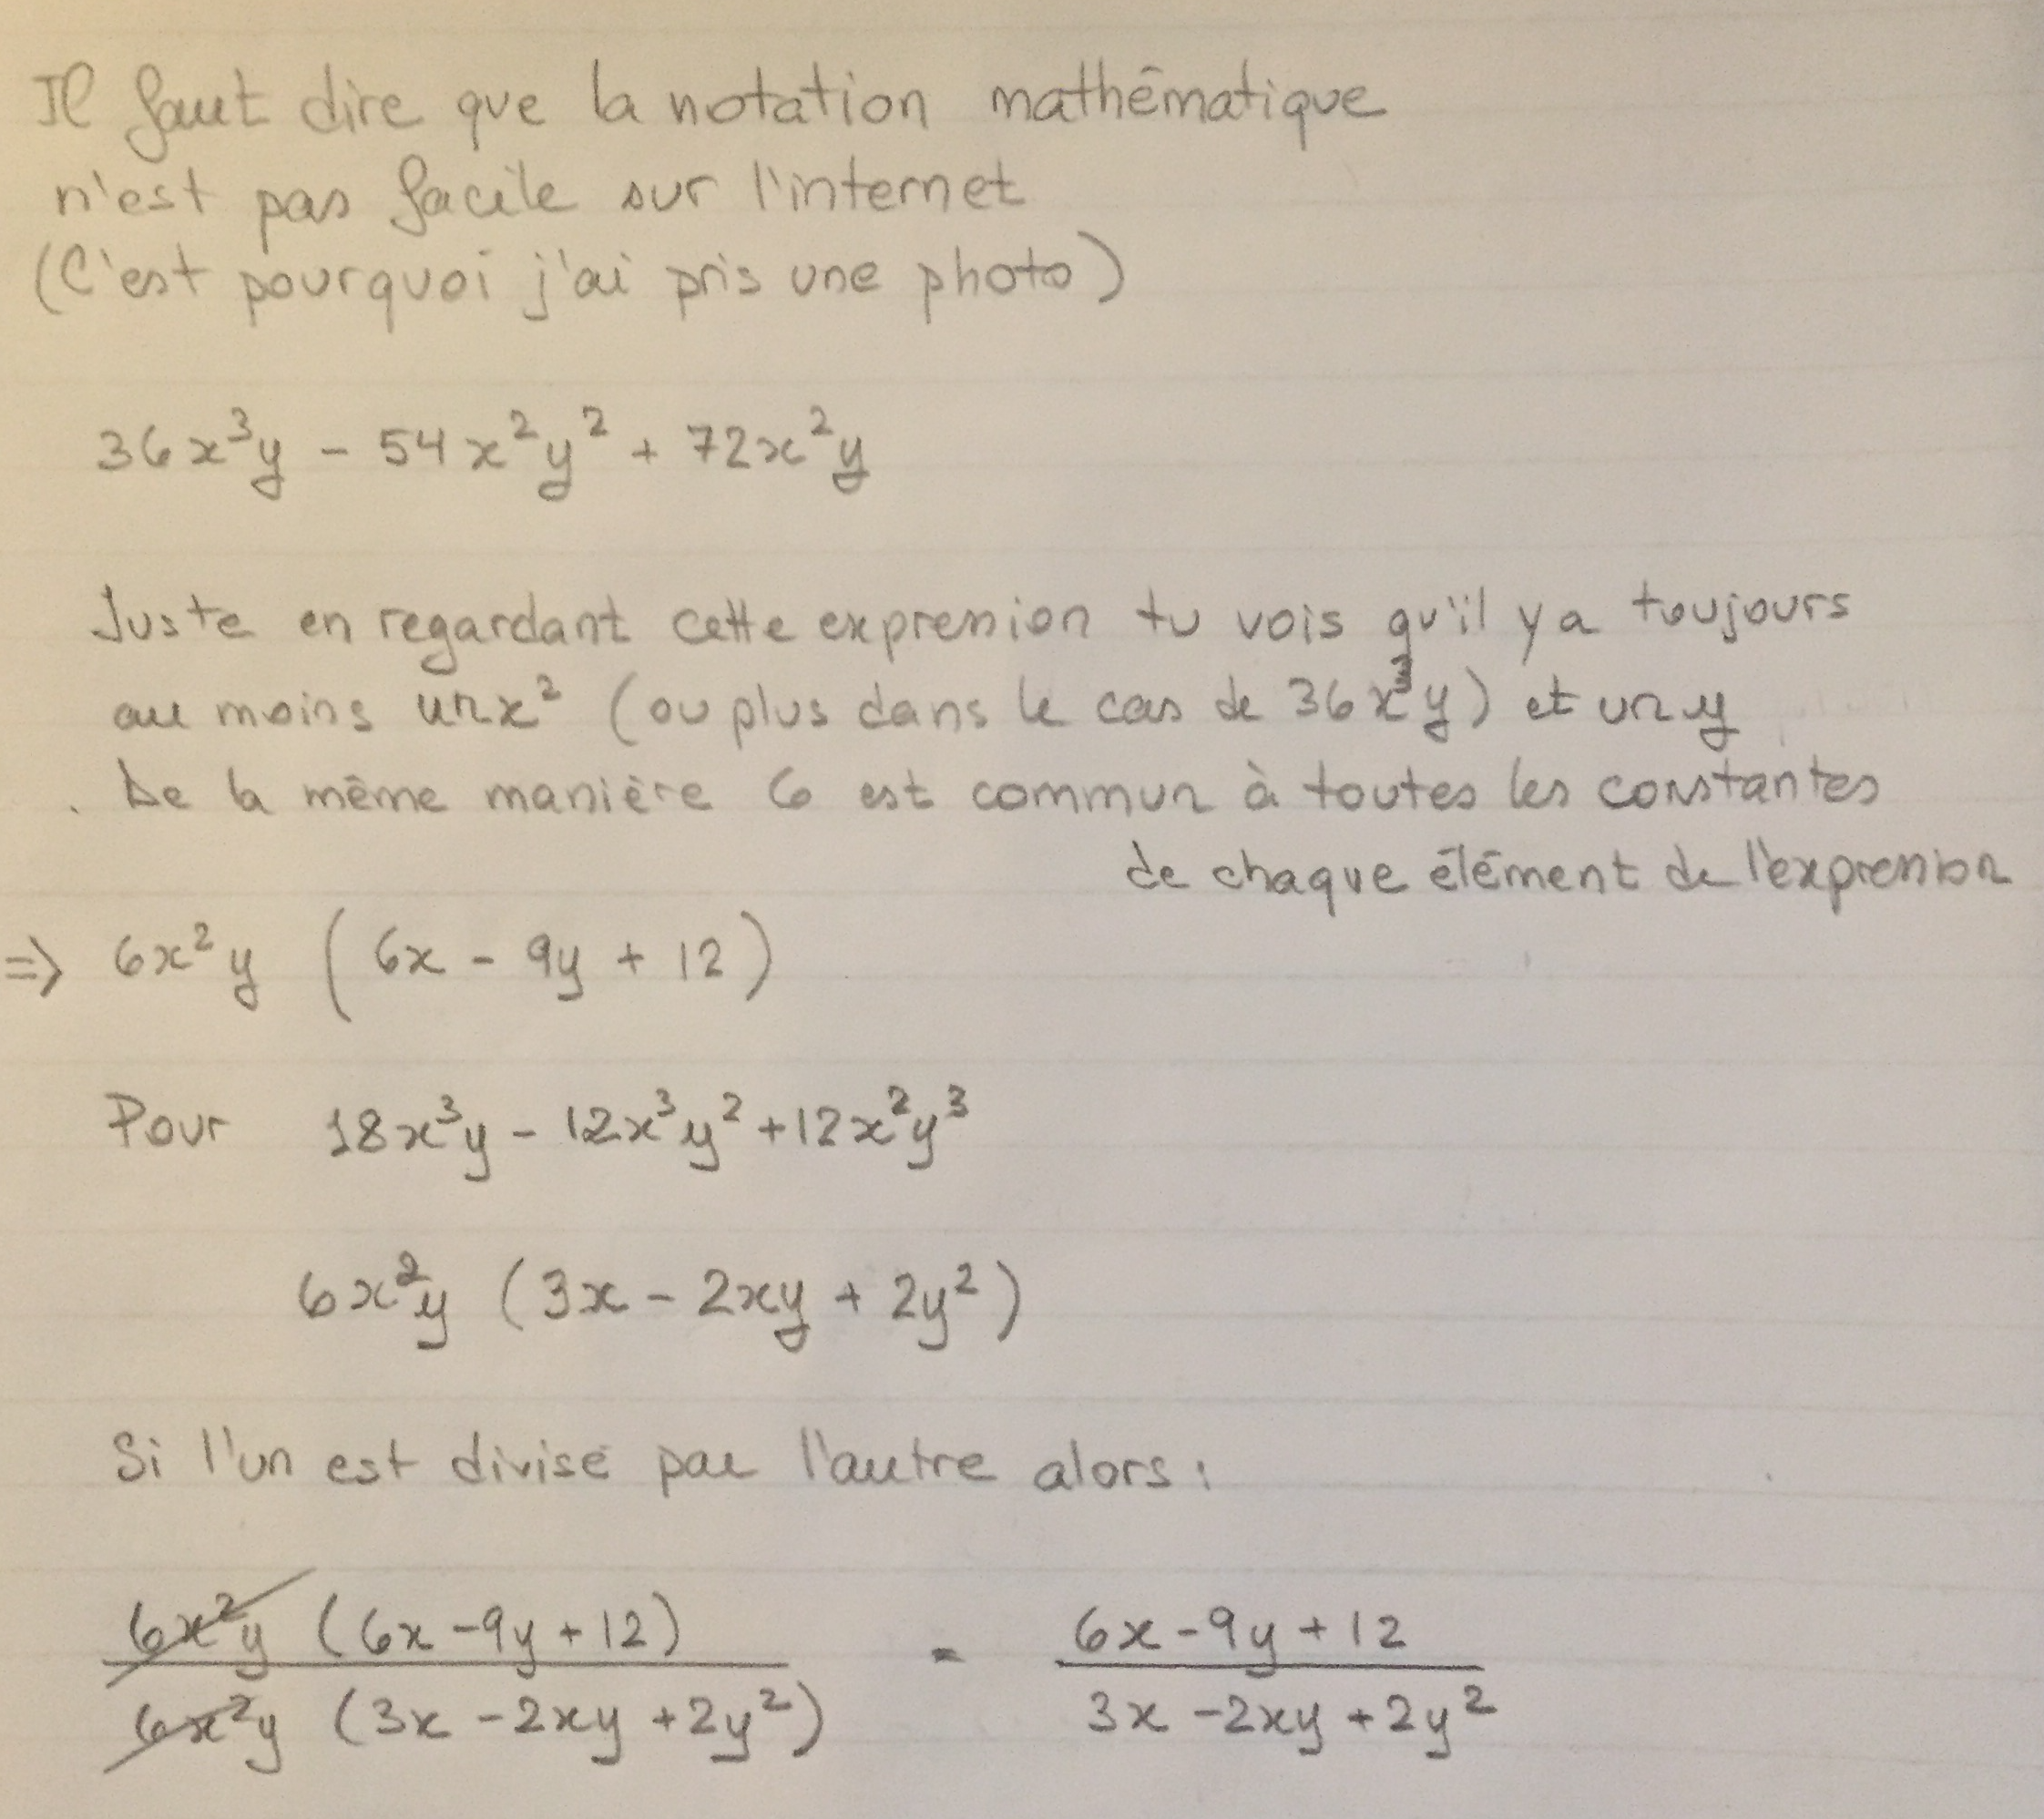 Il faut dire que la notation mathématique
n'est pas facile sur l'internet
(C'est pourquoi j'ai pris une photo)
36x³y - 54x²y² + 72x²y
Juste en regardant cette expression tu vois qu'il y a toujours
au moins un x² (ou plus dans le cas de 36x³y) et un y
. De la même manière 6 est commun à toutes les constantes
de chaque élément de l'expression
=> 6x²y (6x - 9y + 12)
Pour 18x³y - 12x³y² + 12x²y³
6x²y (3x - 2xy + 2y²)
Si l'un est divisé par l'autre alors :
6x²y (6x - 9y + 12) = 6x - 9y + 12
6x²y (3x - 2xy + 2y²) 3x - 2xy + 2y²